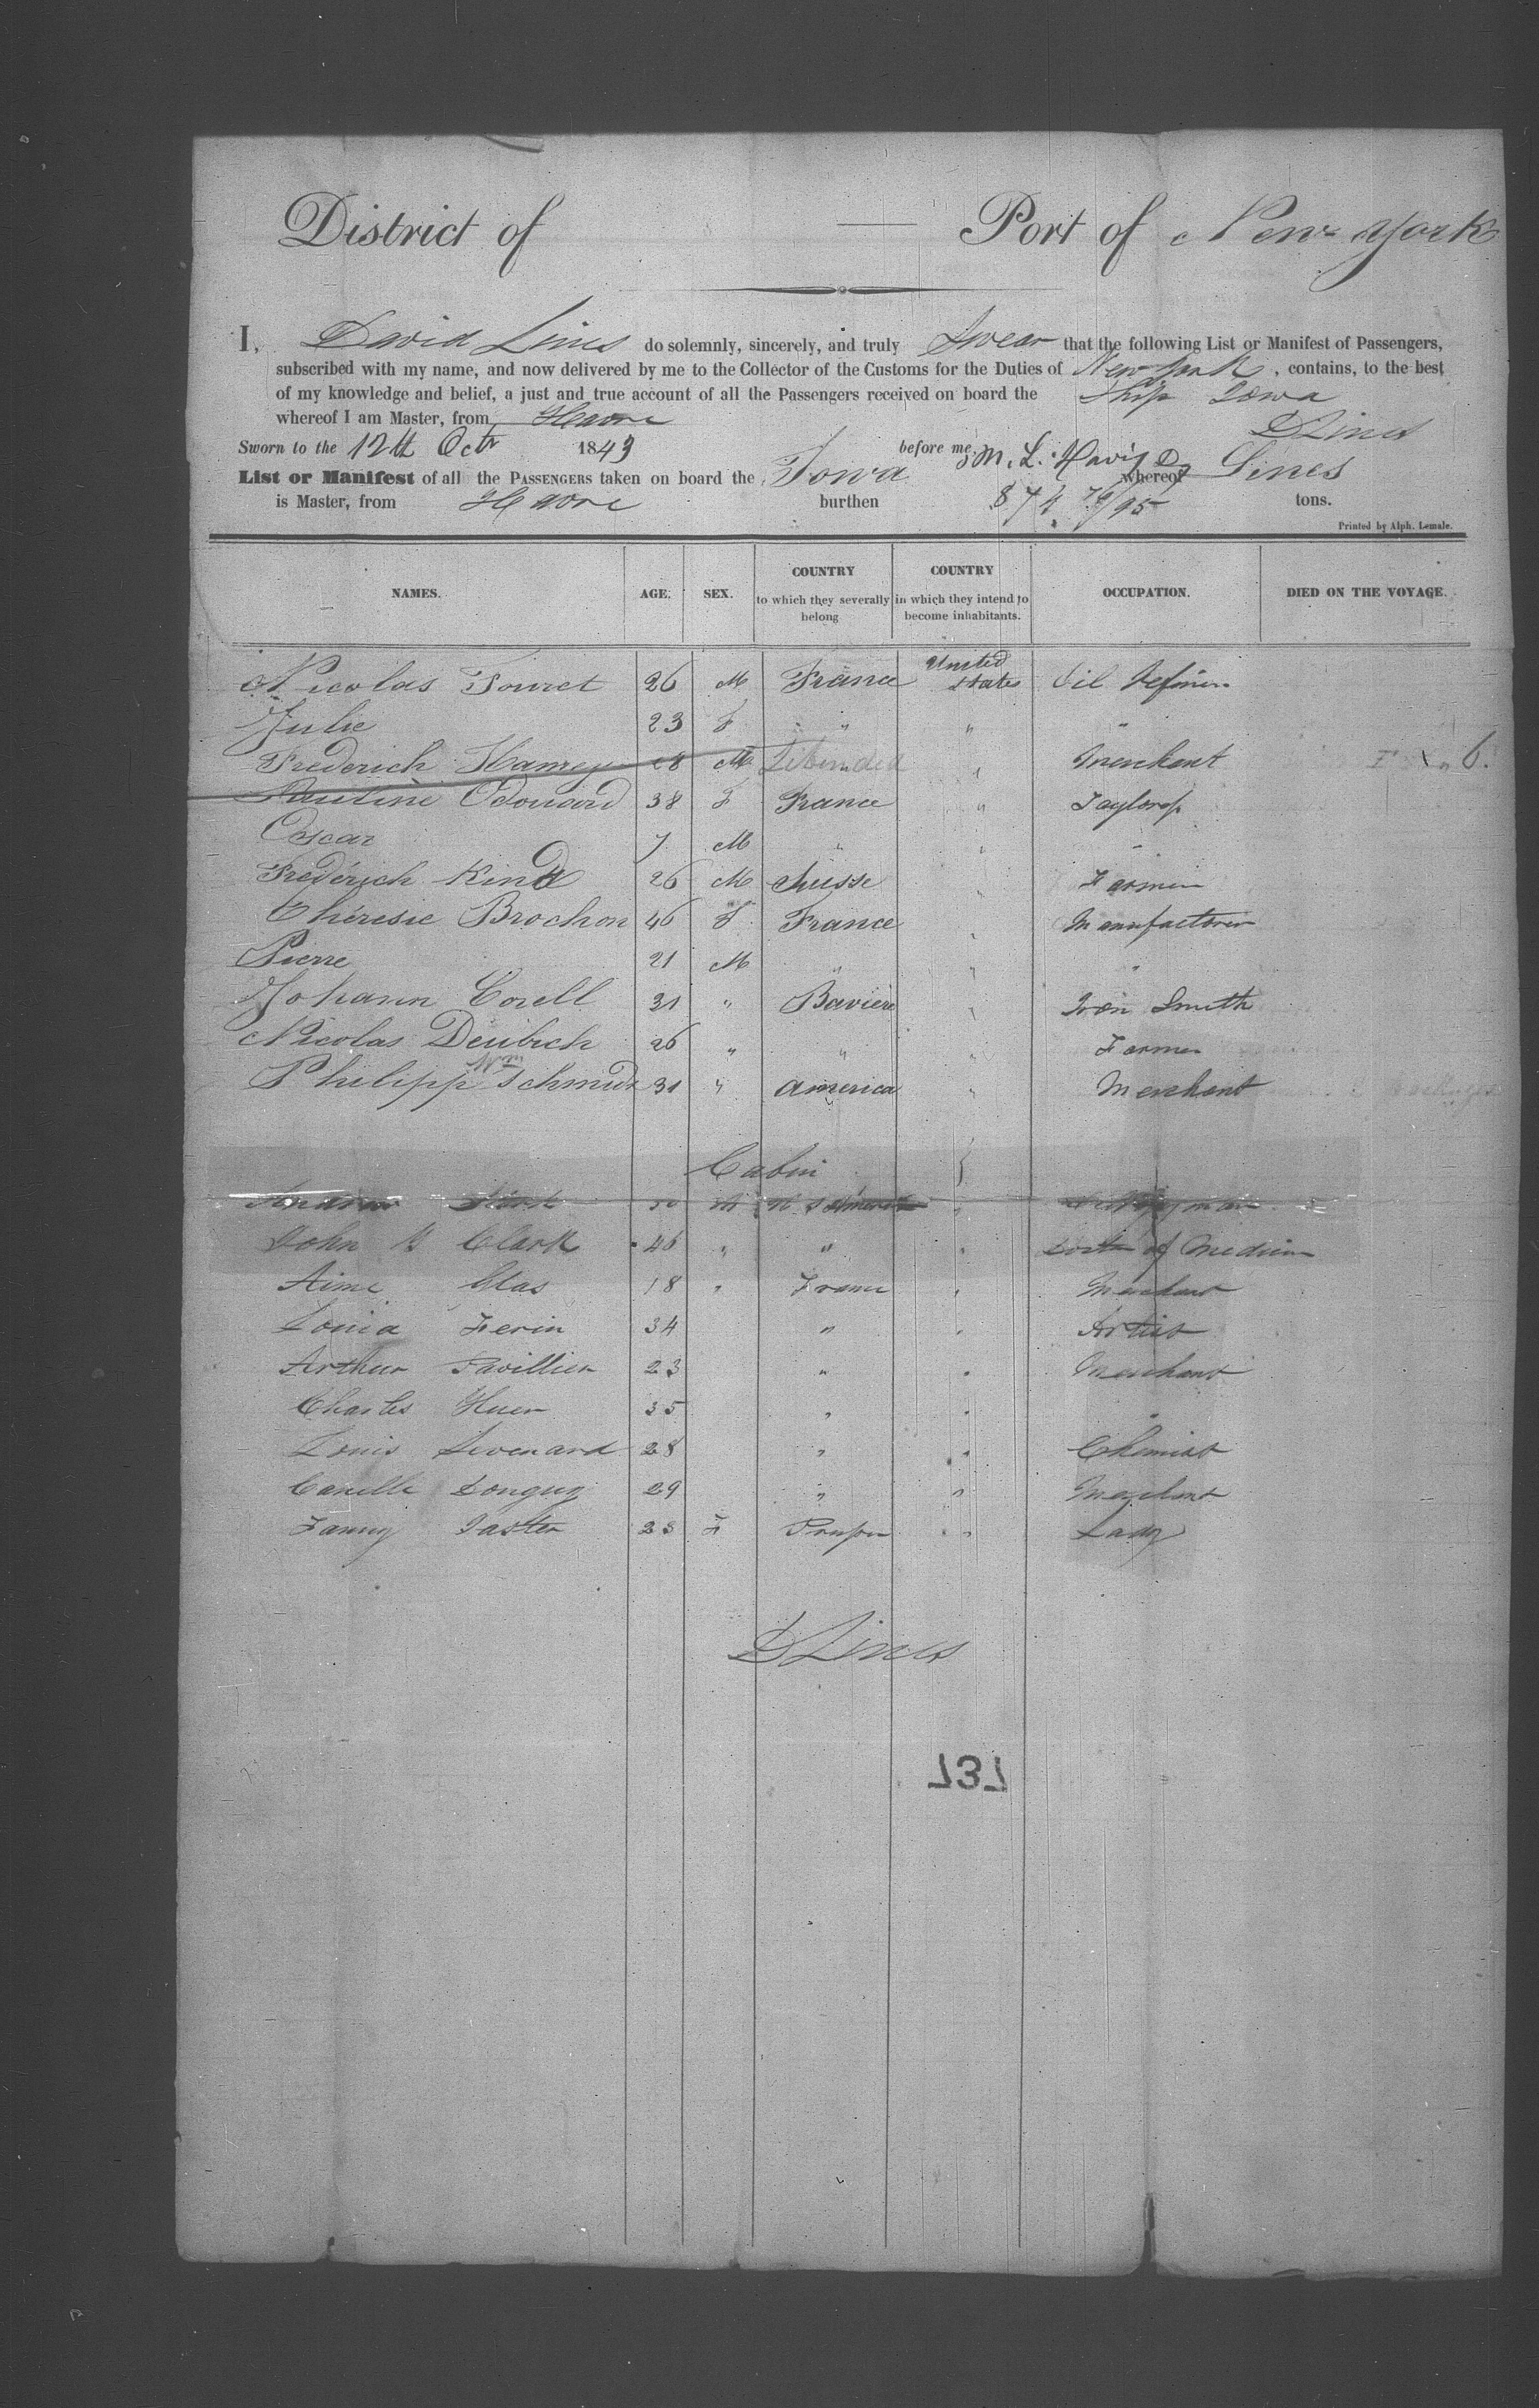 District of — Port of New York
I, David Lines do solemnly, sincerely, and truly Swear that the following List or Manifest of Passengers,
subscribed with my name, and now delivered by me to the Collector of the Customs for the Duties of New York, contains, to the best
of my knowledge and belief, a just and true account of all the Passengers received on board the Ship Iowa
whereof I am Master, from Havre
D Lines
Sworn to the 12th Octr 1843 before me, M. L. Davis
List or Manifest of all the PASSENGERS taken on board the Iowa whereof Lines
is Master, from Havre burthen 874 78/95 tons.
Printed by Alph. Lemale.
NAMES. AGE. SEX. COUNTRY to which they severally belong COUNTRY in which they intend to become inhabitants. OCCUPATION. DIED ON THE VOYAGE.
Nicolas Touret 26 M France United States Oil Refiner
Julie 23 F " " " "
Frederich 28 M " Merchant
Pauline Edouard 38 F France "
Oscar 7 M " " "
Frederich Kind 26 M Suisse " Farmer
Théresie Brochon 46 F France " Manufacturer
Pierre 21 M " " "
Johann Corell 31 " Baviere " Iron Smith
Nicolas Deubich 26 " " " Farmer
Philipp Wm Schmidt 31 " America " Merchant
Cabin
50
John Clark 46 " " " of Medicine
Aime Glas 18 " France " Merchant
Louis Ferin 34 " " Artist
Arthur Tavillier 23 " " Merchant
Charles Huer 35 " " "
Louis Sevenard 28 " " Chemist
29 " " Merchant
Fanny 28 F " Lady
D Lines
737